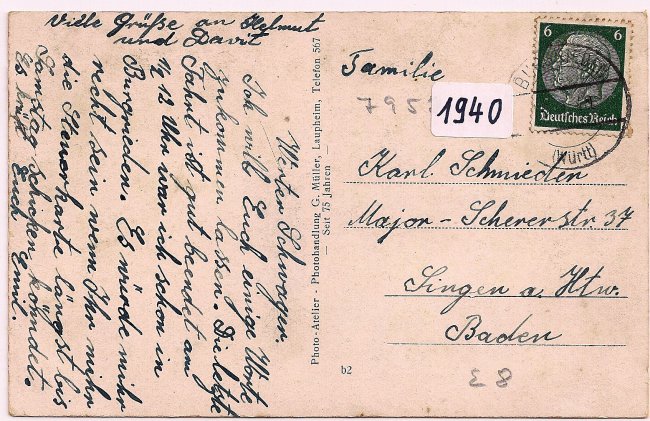 Viele Grüße an Helmut
und Davit
Werter Schwager.
Ich will Euch einige Worte
zukommen lassen. Die letzte
Fahrt ist gut beendet am
½ 12 Uhr war ich schon in
Burgrieden. Es würde mir
recht sein wenn Ihr mihr
die Steuerkarte längst bis
Samstag schicken könndet.
Es grüßt Euch Emil.
Photo-Atelier - Photohandlung G. Müller, Laupheim, Telefon 567
— Seit 75 Jahren —
b2
6 6
Deutsches Reich
(Württ)
1940
Familie
Karl Schmieder
Major-Schererstr 37
Singen a. Htw.
Baden
E 8